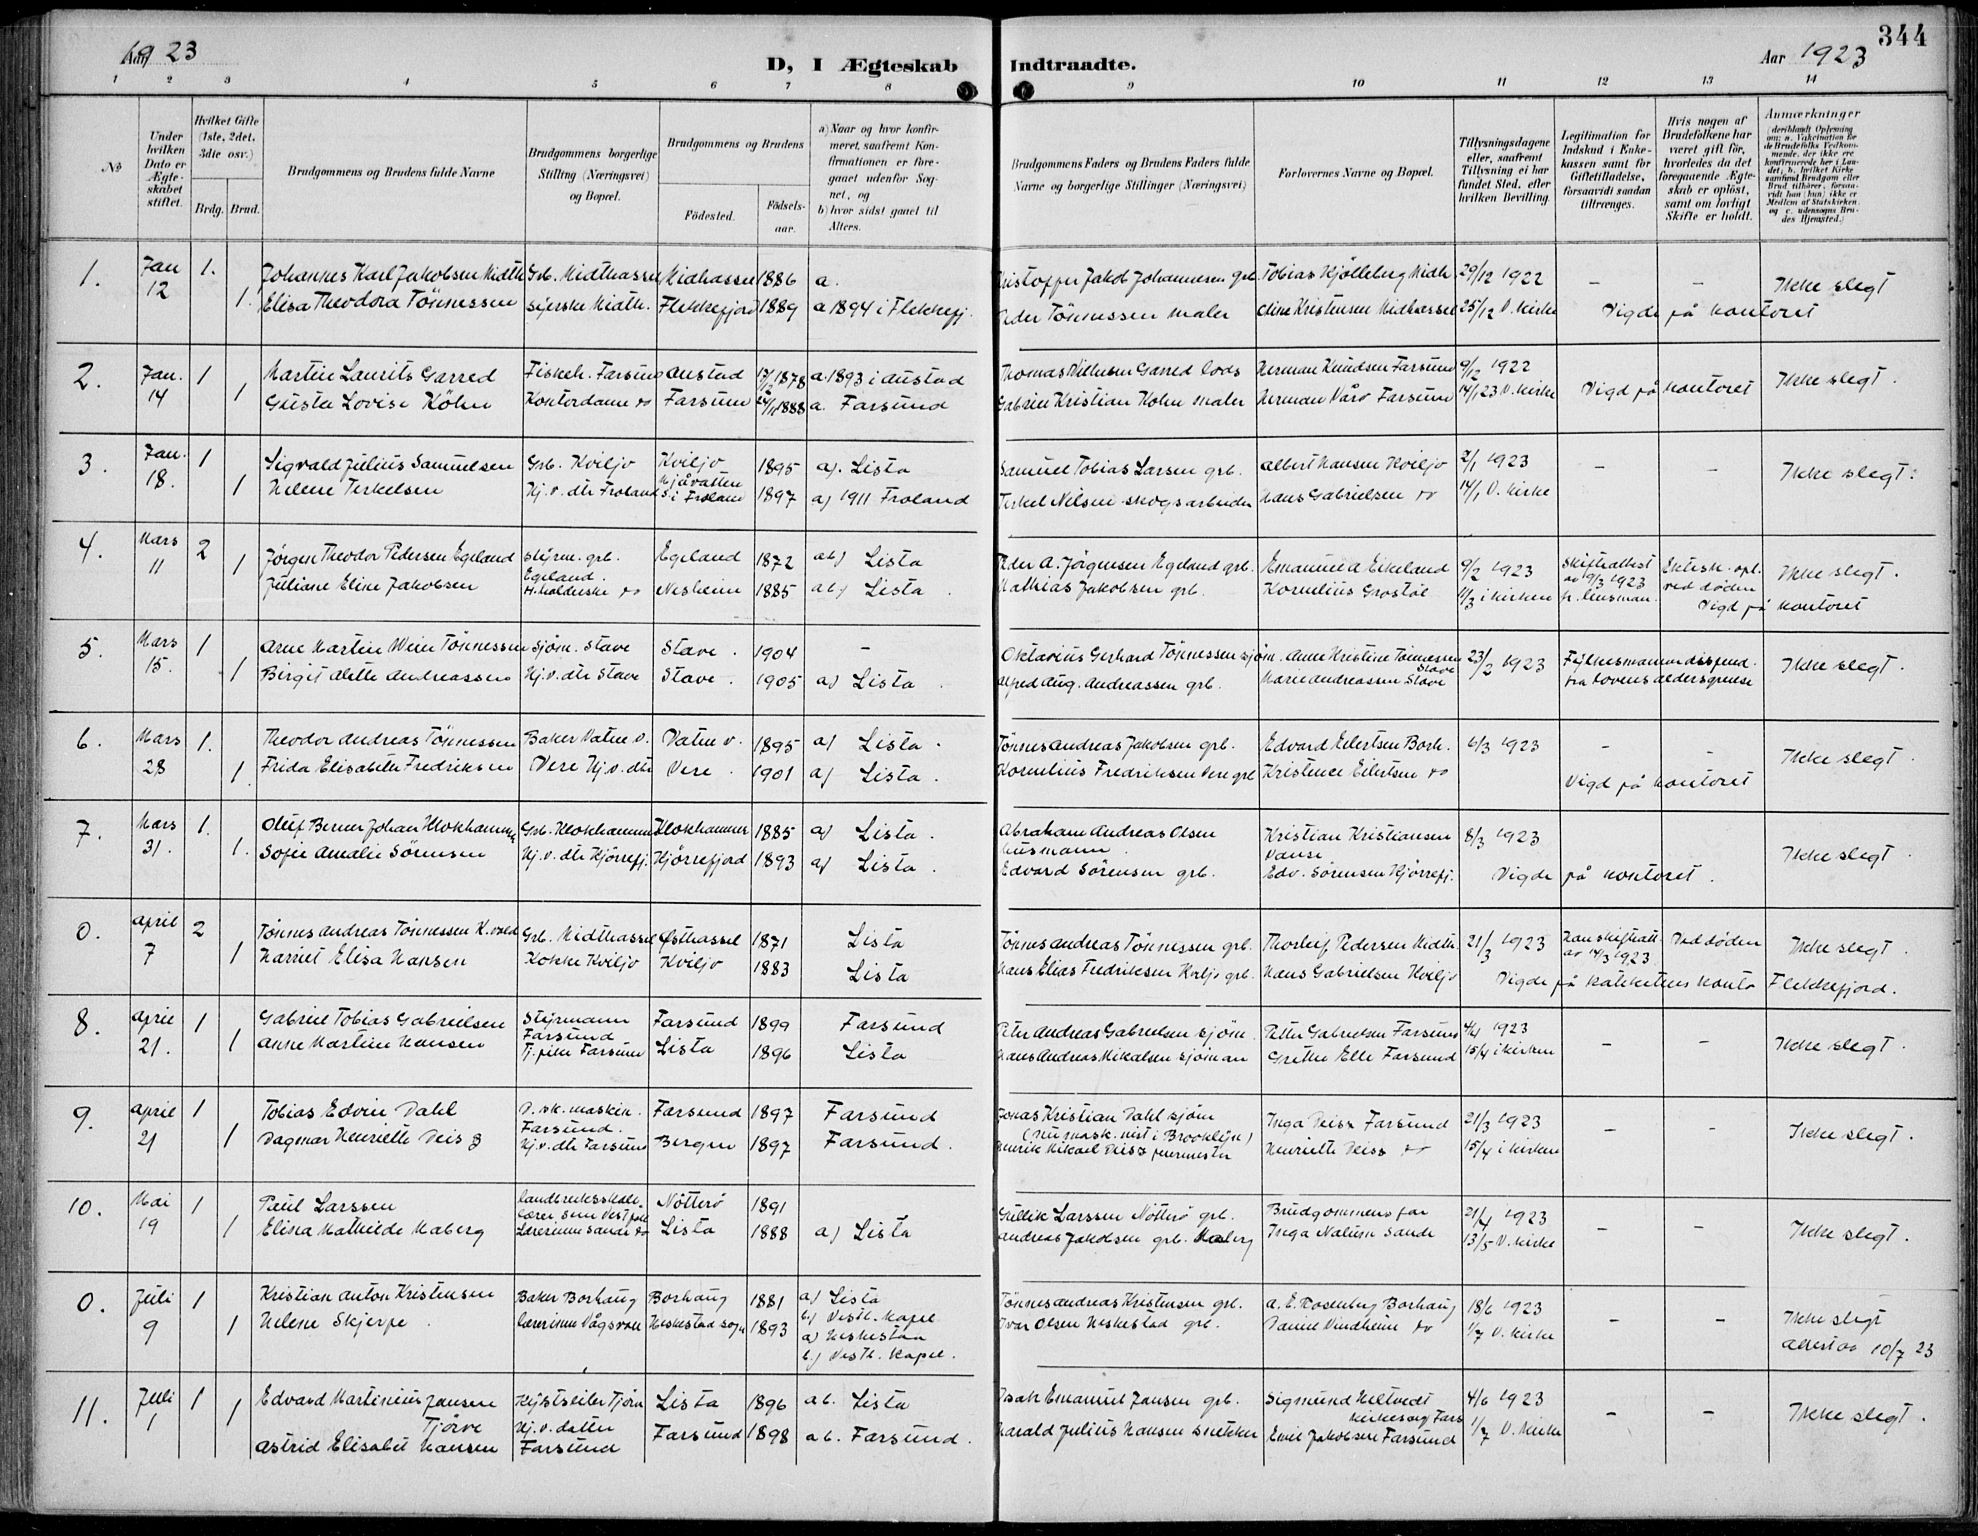 344
Aar 1923
D, I Ægteskab Indtraadte.
Aar 1923
1 2 3 4 5 6 7 8 9 10 11 12 13 14
No
Under hvilken Dato er Ægteskabet stiftet.
Hvilket Gifte (1ste, 2det, 3dte osv.)
Brdg. Brud.
Brudgommens og Brudens fulde Navne
Brudgommens borgerlige Stilling (Næringsvei) og Bopæl.
Brudgommens og Brudens
Födested.
Födselsaar.
a) Naar og hvor konfirmeret, saafremt Konfirmationen er foregaaet udenfor Sognet, og
b) hvor sidst gaaet til Alters.
Brudgommens Faders og Brudens Faders fulde Navne og borgerlige Stillinger (Næringsvei)
Forlovernes Navne og Bopæl.
Tillysningsdagene eller, saafremt Tillysning ei har fundet Sted, efter hvilken Bevilling.
Legitimation for Indskud i Enkekassen samt for Giftetilladelse, forsaavidt saadan tiltrænges.
Hvis nogen af Brudefolkene har været gift för, hvorledes da det foregaaende Ægteskab er oplöst, samt om lovligt Skifte er holdt.
Anmærkninger
(deriblandt Oplysning om: a. Vakcination for de Brudefolks Vedkommende, der ikke ere konfirmerede her i Landet; b. hvilket Kirkesamfund Brudgom eller Brud tilhører, forsaavidt han (hun) ikke er Medlem af Statskirken, og c. udensogns Brudes Hjemsted.)
1. Jan 12 1. Johannes Karl Jakobsen Midth Grb. Midthassel Midhassel 1886 a. Kristoffer Jakob Johannesen grb Tobias Kjölleberg Midh 29/12 1922 – – Ikke slegt
1. Elisa Theodora Tönnessen syerske Midth. Flekkefjord 1889 a 1894 i Flekkefj. Peder Tönnessen maler Oline Kristensen Midhassel 25/12 V. Kirke Vigde på kontoret
2. Jan. 14 1 Martin Laurits Garred Fiskeh. Farsund Austad 17/2 1878 a. 1893 i Austad Thomas Vilhelm Garred lods Herman Knudsen Farsund 9/12 1922 Ikke slegt.
1 Gusta Lovise Köhn Kontordame do Farsund 1888 a. Farsund Gabriel Kristian Kohn maler Herman Vårø Farsund 14/1 23 V. Kirke Vigd på kontoret
3. Jan. 18. 1 Sigvald Julius Samuelsen Grb. Kviljo Kviljo 1895 a). Lista Samuel Tobias Larsen grb. Albert Hansen Kviljo 2/1 1923 – – Ikke slegt.
1 Helene Terkelsen Hj. v. dtr Froland s. i Froland 1897 a) 1911 Froland Terkel Nilsen skogsarbeider Hans Gabrielsen do 14/1 V. Kirke
4. Mars 11 2 Jørgen Theodor Pedersen Egeland Styrm. grb. Egeland. Egeland 1872 ab) Lista Peder A. Jörgensen Egeland grb. Emanuel A Eikeland 9/2 1923 Skifteattest av 9/3 1923 fr. lensman. Ektesk. opl. ved döden Ikke slegt.
1 Juliane Eline Jakobsen H. holderske do Nesheim 1885 ab) Lista. Mathias Jakobsen grb. Kornelius Grostöl 11/3 i kirken Vigd på kontoret
5. Mars 15. 1 Arne Martin Weier Tönnessen Sjöm. Stave Stave. 1904 – Oktavius Gerhard Tönnessen sjöm. Anne Kristine Tönnessen Stave 23/2 1923 Fylkesmannen dispend. fra lovens aldersgrense Ikke slegt.
1 Birgit Alette Andreassen Hj. v. dtr Stave Stave. 1905 a) Lista. Alfred Aug. Andreassen grb. Marie Andreassen Stave
6. Mars 28 1. Theodor Andreas Tönnessen Baker Vatne v. Vatne v. 1895 a) Lista. Tönnes Andreas Jakobsen grb. Edvard Eilertsen Borh. 6/3 1923 – – Ikke slegt.
1. Frida Elisabeth Fredriksen Vere Hj. v. dtr Vere. 1901 a) Lista. Kornelius Fredriksen Vere grb Kristence Eilertsen do Vigd på kontoret
7. Mars 31. 1. Oluf Berner Johan Klokhammer Grb. Klokhammer Klokhammer 1885 a) Lista. Abraham Andreas Olsen husmann. Kristian Kristiansen Vanse 8/3 1923 Ikke slegt.
1. Sofie Amalie Sörensen Hj. v. dtr Kjörrefj. Kjørrefjord 1893 a) Lista. Edvard Sörensen grb. Edv. Sörensen Kjörrefj. Vigde på kontoret.
0. April 7 2 Tönnes Andreas Tönnessen Grb. Midthassel Østhassel 1871 Lista Tönnes Andreas Tönnessen grb. Thorleif Pedersen Midth. 21/3 1923 Han skifteatt. av 14/3 1923 Ved döden Ikke slegt.
1 Harriet Elisa Hansen Kokke Kviljo Kviljo 1883 Lista Hans Elias Fredriksen Kviljo grb. Hans Gabrielsen Kviljo Vigde på katekettens kontor Flekkefjord.
8. April 21. 1 Gabriel Tobias Gabrielsen Styrmann Farsund Farsund 1899 Farsund Peter Andreas Gabrielsen sjöm. Petter Gabrielsen Farsund 4/4 1923 – – Ikke slegt.
1 Anne Martine Hansen Tj. pike Farsund Lista 1896 Lista Hans Andreas Mikalsen sjöman Grethe Elle Farsund 15/4 i kirken
9. April 21 1 Tobias Edvin Dahl D. sk. maskin. Farsund. Farsund 1897 Farsund Jonas Kristian Dahl sjöm (nu mask. mst i Brooklyn) Inga Deisz Farsund 21/3 1923 – – Ikke slegt.
1 Dagmar Henriette Deisz Hj. v. dtr Farsund Bergen 1897 Farsund. Henrik Mikael Deisz feiermester Henriette Deisz do 15/4 i kirken
10. Mai 19 1 Paul Larssen landbruksskole lærer Sem Vestfold Nötterö 1891 Gullik Larssen Nötterö grb. Brudgommens far 21/4 1923 – – Ikke slegt.
1 Elina Mathilde Maberg Lærerinne Sande do Lista 1888 a) Lista Andreas Jakobsen grb. Maberg Inga Nalum Sande 13/5 V. Kirke
0. Juli 9 1 Kristian Anton Kristensen Baker Borhaug Borhaug 1881 a) Lista b) Vestb. Kapel Tönnes Andreas Kristensen grb. A. E. Rosenberg Borhaug 18/6 1923 – – Ikke slegt
1 Helene Skjerpe lærerinne Vågsvoll Heskestad sogn 1893 a) Heskestad b) Vestb. Kapel. Ivar Olsen Heskestad grb. Daniel Vindheim do 1/7 V. Kirke Attest av 10/7 23
11. Juli 1 1 Edvard Martinius Jansen Tjörve Lista 1896 ab. Lista Isak Emanuel Jansen grb. Sigmund Heltvedt kirkesang Fars 4/6 1923 – – Ikke slegt.
1 Astrid Elisabet Hansen Hj. v. datter Farsund Farsund 1898 ab. Farsund. Harald Julius Hansen snekker Emil Jakobsen Farsund 1/7 V. Kirke